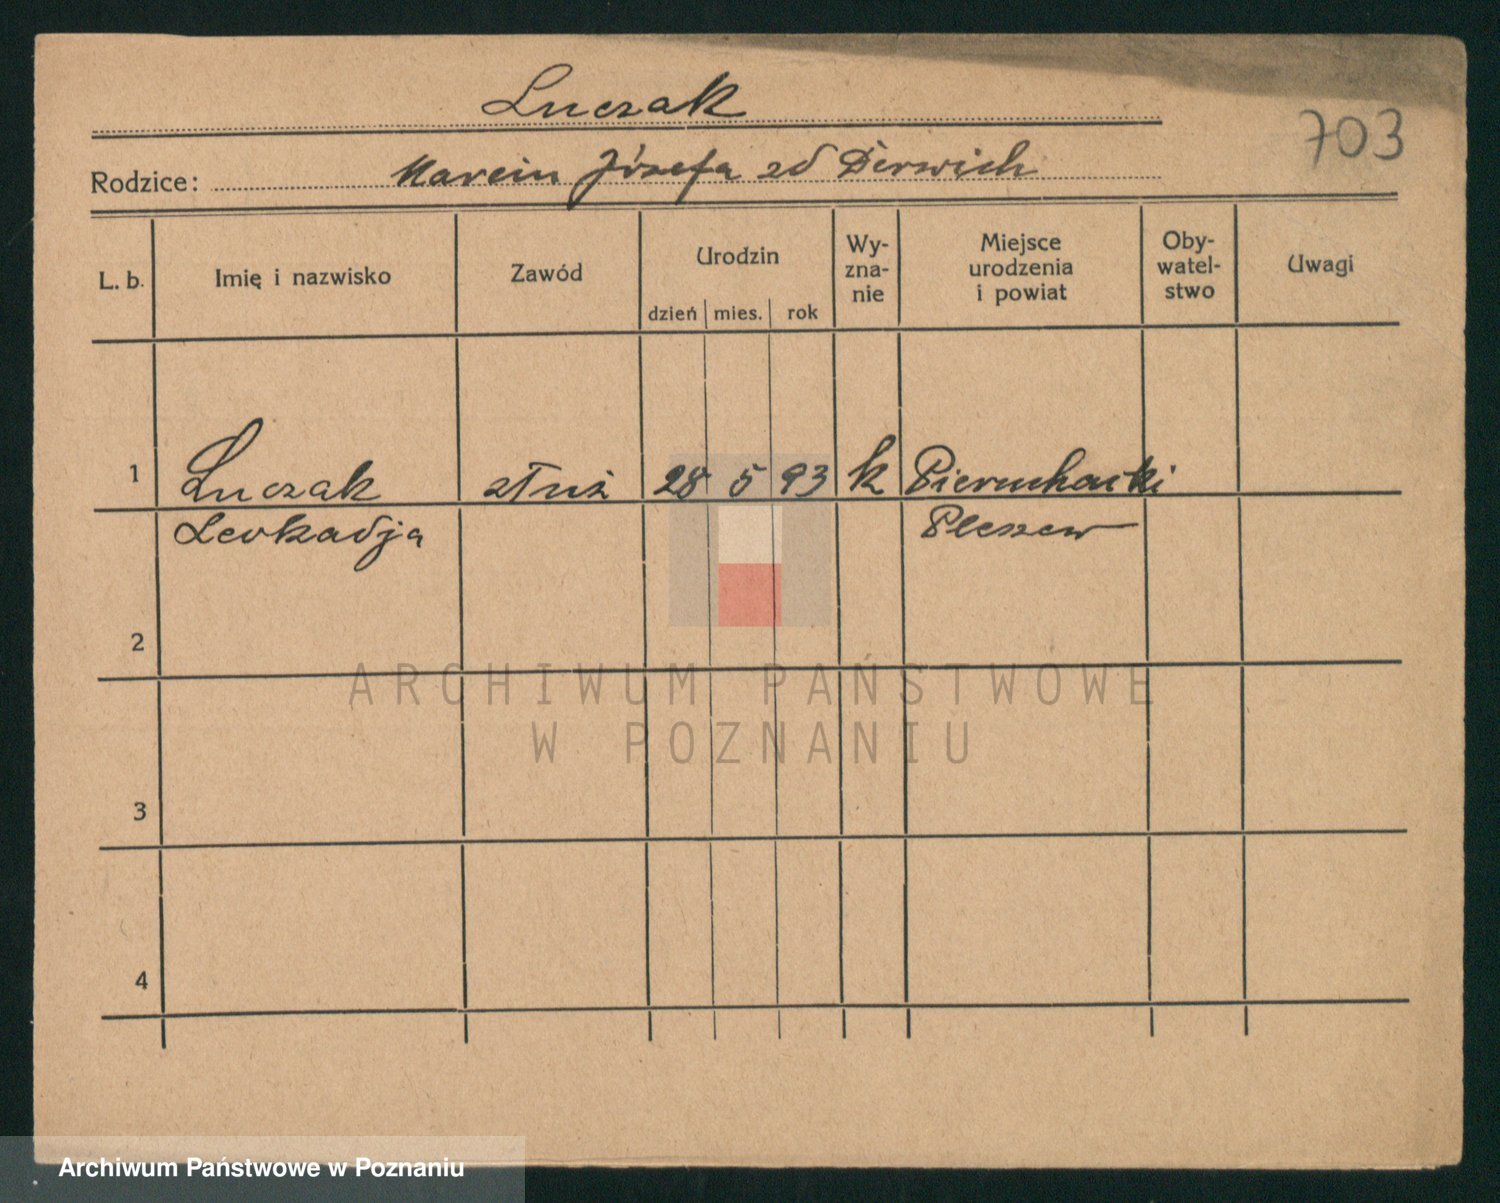 Luczak
703
Rodzice: Marcin Józefa zd Derwich
L. b. Imię i nazwisko Zawód Urodzin dzień mies. rok Wy-zna-nie Miejsce urodzenia i powiat Oby-watel-stwo Uwagi
1 Luczak służ 28 5 93 k Pieruchacki
Leokadja Pleszew
2
3
4
ARCHIWUM PAŃSTWOWE
W POZNANIU
Archiwum Państwowe w Poznaniu